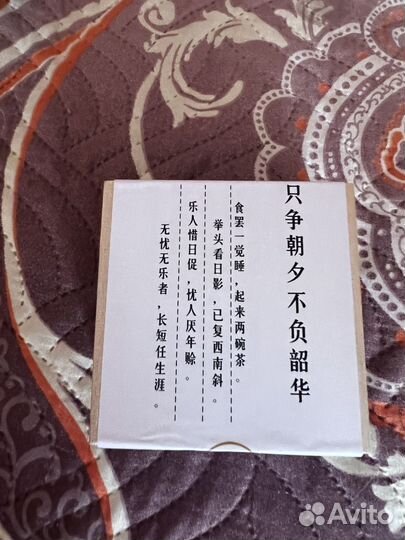 只争朝夕不负韶华
食罢一觉睡，起来两碗茶。
举头看日影，已复西南斜。
乐人惜日促，忧人厌年赊。
无忧无乐者，长短任生涯。
Avito